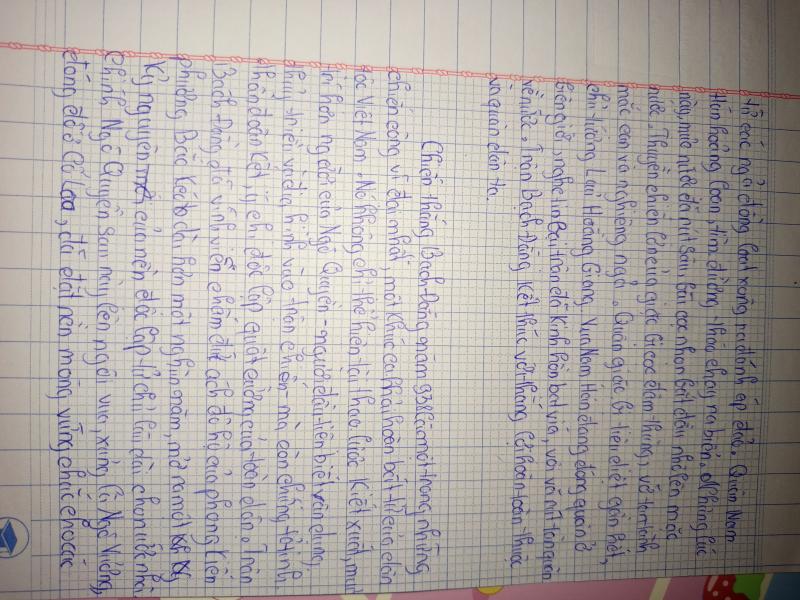 từ các ngả đồng loạt xông ra đánh áp đảo. Quân Nam
Hán hoảng loạn, tìm đường tháo chạy ra biển. Nhưng lúc
này, mực nước đã rút sâu, bãi cọc nhọn bắt đầu nhô lên mặt
nước. Thuyền chiến lớn của giặc bị cọc đâm thủng, vỡ tan tành
mắc cạn và nghiêng ngả. Quân giặc bị tiêu diệt gần hết,
chủ tướng Lưu Hoằng Tháo. Vua Nam Hán đang đóng quân ở
biên giới, nghe tin bại trận đã kinh hồn bạt vía, vội vã rút tàn quân
về nước. Trận Bạch Đằng kết thúc với thắng lợi hoàn toàn thuộc
về quân dân ta.
Chiến thắng Bạch Đằng năm 938 là một trong những
chiến công vĩ đại nhất, một khúc ca khải hoàn bất tử của dân
tộc Việt Nam. Nó không chỉ thể hiện tài thao lược kiệt xuất, mưu
trí hơn người của Ngô Quyền - người đầu tiên biết vận dụng
thủy triều và địa hình vào trận chiến - mà còn chứng tỏ tinh
thần đoàn kết, ý chí độc lập quật cường của toàn dân. Trận
Bạch Đằng đã vĩnh viễn chấm dứt ách đô hộ của phong kiến
phương Bắc kéo dài hơn một nghìn năm, mở ra một kỷ
Kỷ nguyên của nền độc lập tự chủ lâu dài cho nước nhà
Chính Ngô Quyền sau này lên ngôi vua, xưng là Ngô Vương,
đóng đô ở Cổ Loa, đã đặt nền móng vững chắc cho các